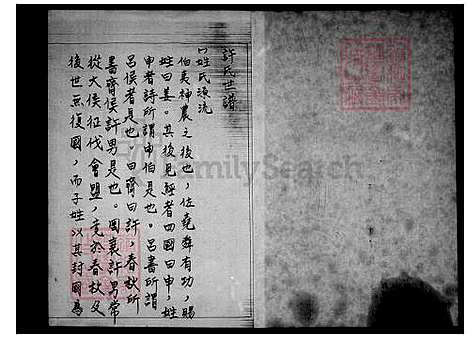 許氏世譜
姓氏源流
伯夷神農之後也，佐堯舜有功，賜
姓曰姜。其後見經者四國曰申，
申者詩所謂申伯是也。呂書所謂
呂侯者是也。曰齊曰許，春秋所
書齊侯許男是也。國衰許男常
從大侯征伐會盟，竟於春秋及
後世無復國，而子姓以其封國為
FamilySearch